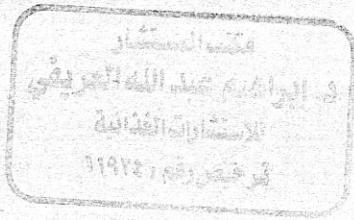 مكتب المستشار
د. إبراهيم عبد الله العريفي
للاستشارات الغذائية
ترخيص رقم / ١١٩٢٤